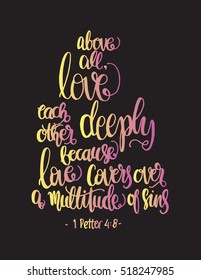 above
all,
love
each
other deeply
because
love covers over
a multitude of sins
- 1 Petter 4:8 -
shutterstock.com · 518247985